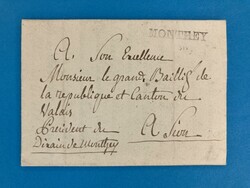 MONTHEY
A Son Excellence
Monsieur le grand Baillif de
la republique et Canton du
Valais
President du
Dixain de Monthey
A Sion